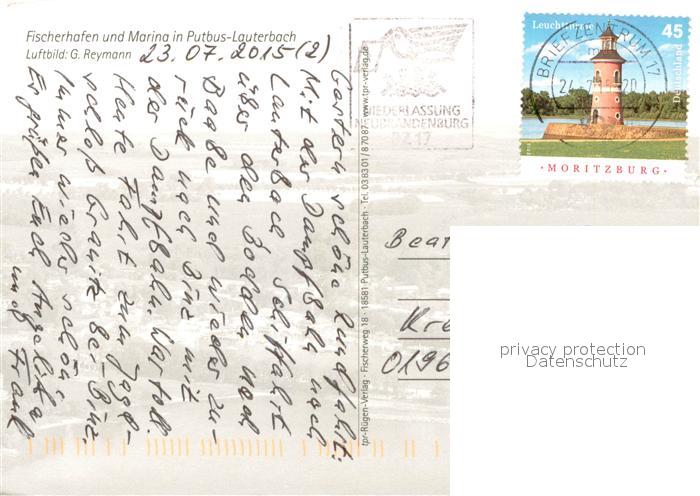 Fischerhafen und Marina in Putbus-Lauterbach
Luftbild: G. Reymann
23.07.2015 (2)
Gestern schöne Rundfahrt:
Mit der Dampfbahn nach
Lauterbach Schiffahrt
über den Bodden nach
Baabe und wieder zu-
rück nach Binz mit
der Dampfbahn.
Heute Fahrt zum Jagd-
schloß Granitz bei Binz.
Immer wieder schön
Es grüßen Euch Angelika
und Frank
tpr-Rügen-Verlag · Fischerweg 18 · 18581 Putbus-Lauterbach · Tel. 038301/87087 · www.tpr-verlag.de
NIEDERLASSUNG
NEUBRANDENBURG
BRIEFZENTRUM 17
Leuchttürme
45
Deutschland
·MORITZBURG·
Beat
Kre
0196
privacy protection
Datenschutz